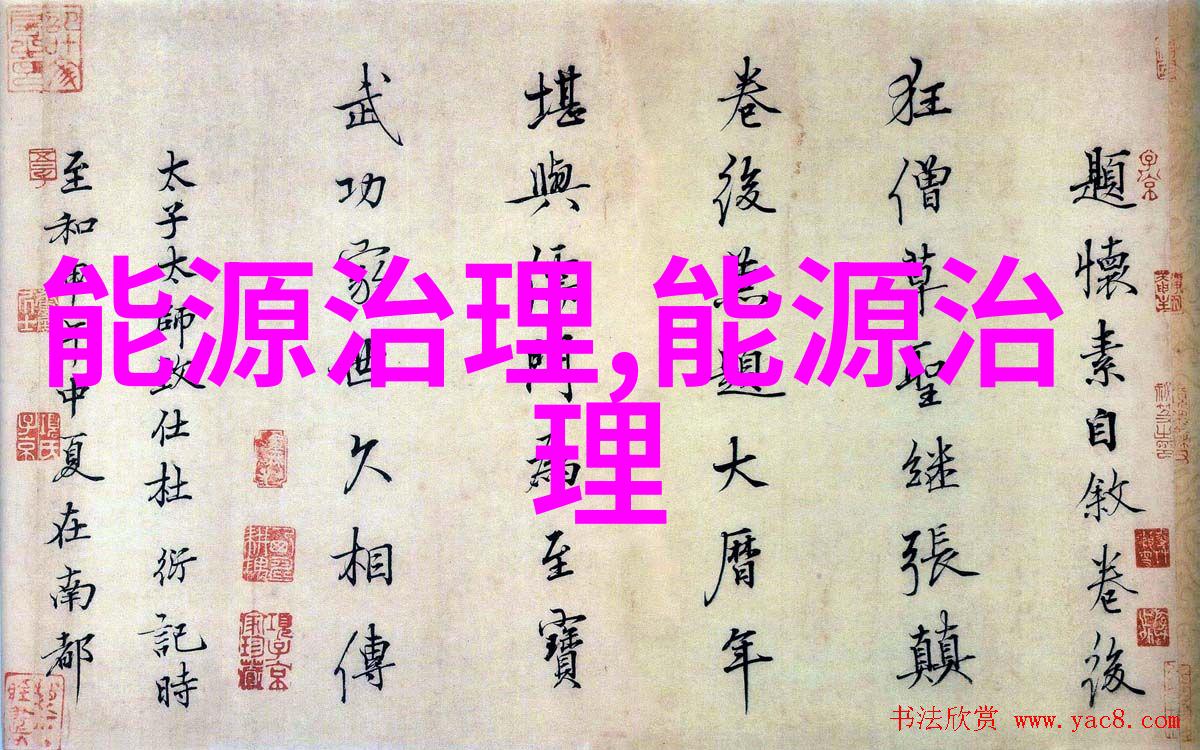 能源治理,能源治
理
題懷素自敘卷後
狂僧草聖継張顛
卷後兼題大曆年
堪與門為至寶
武功家世久相傳
太子太師致仕杜 衍記時
至和甲午中夏在南都
书法欣赏 www.yac8.com